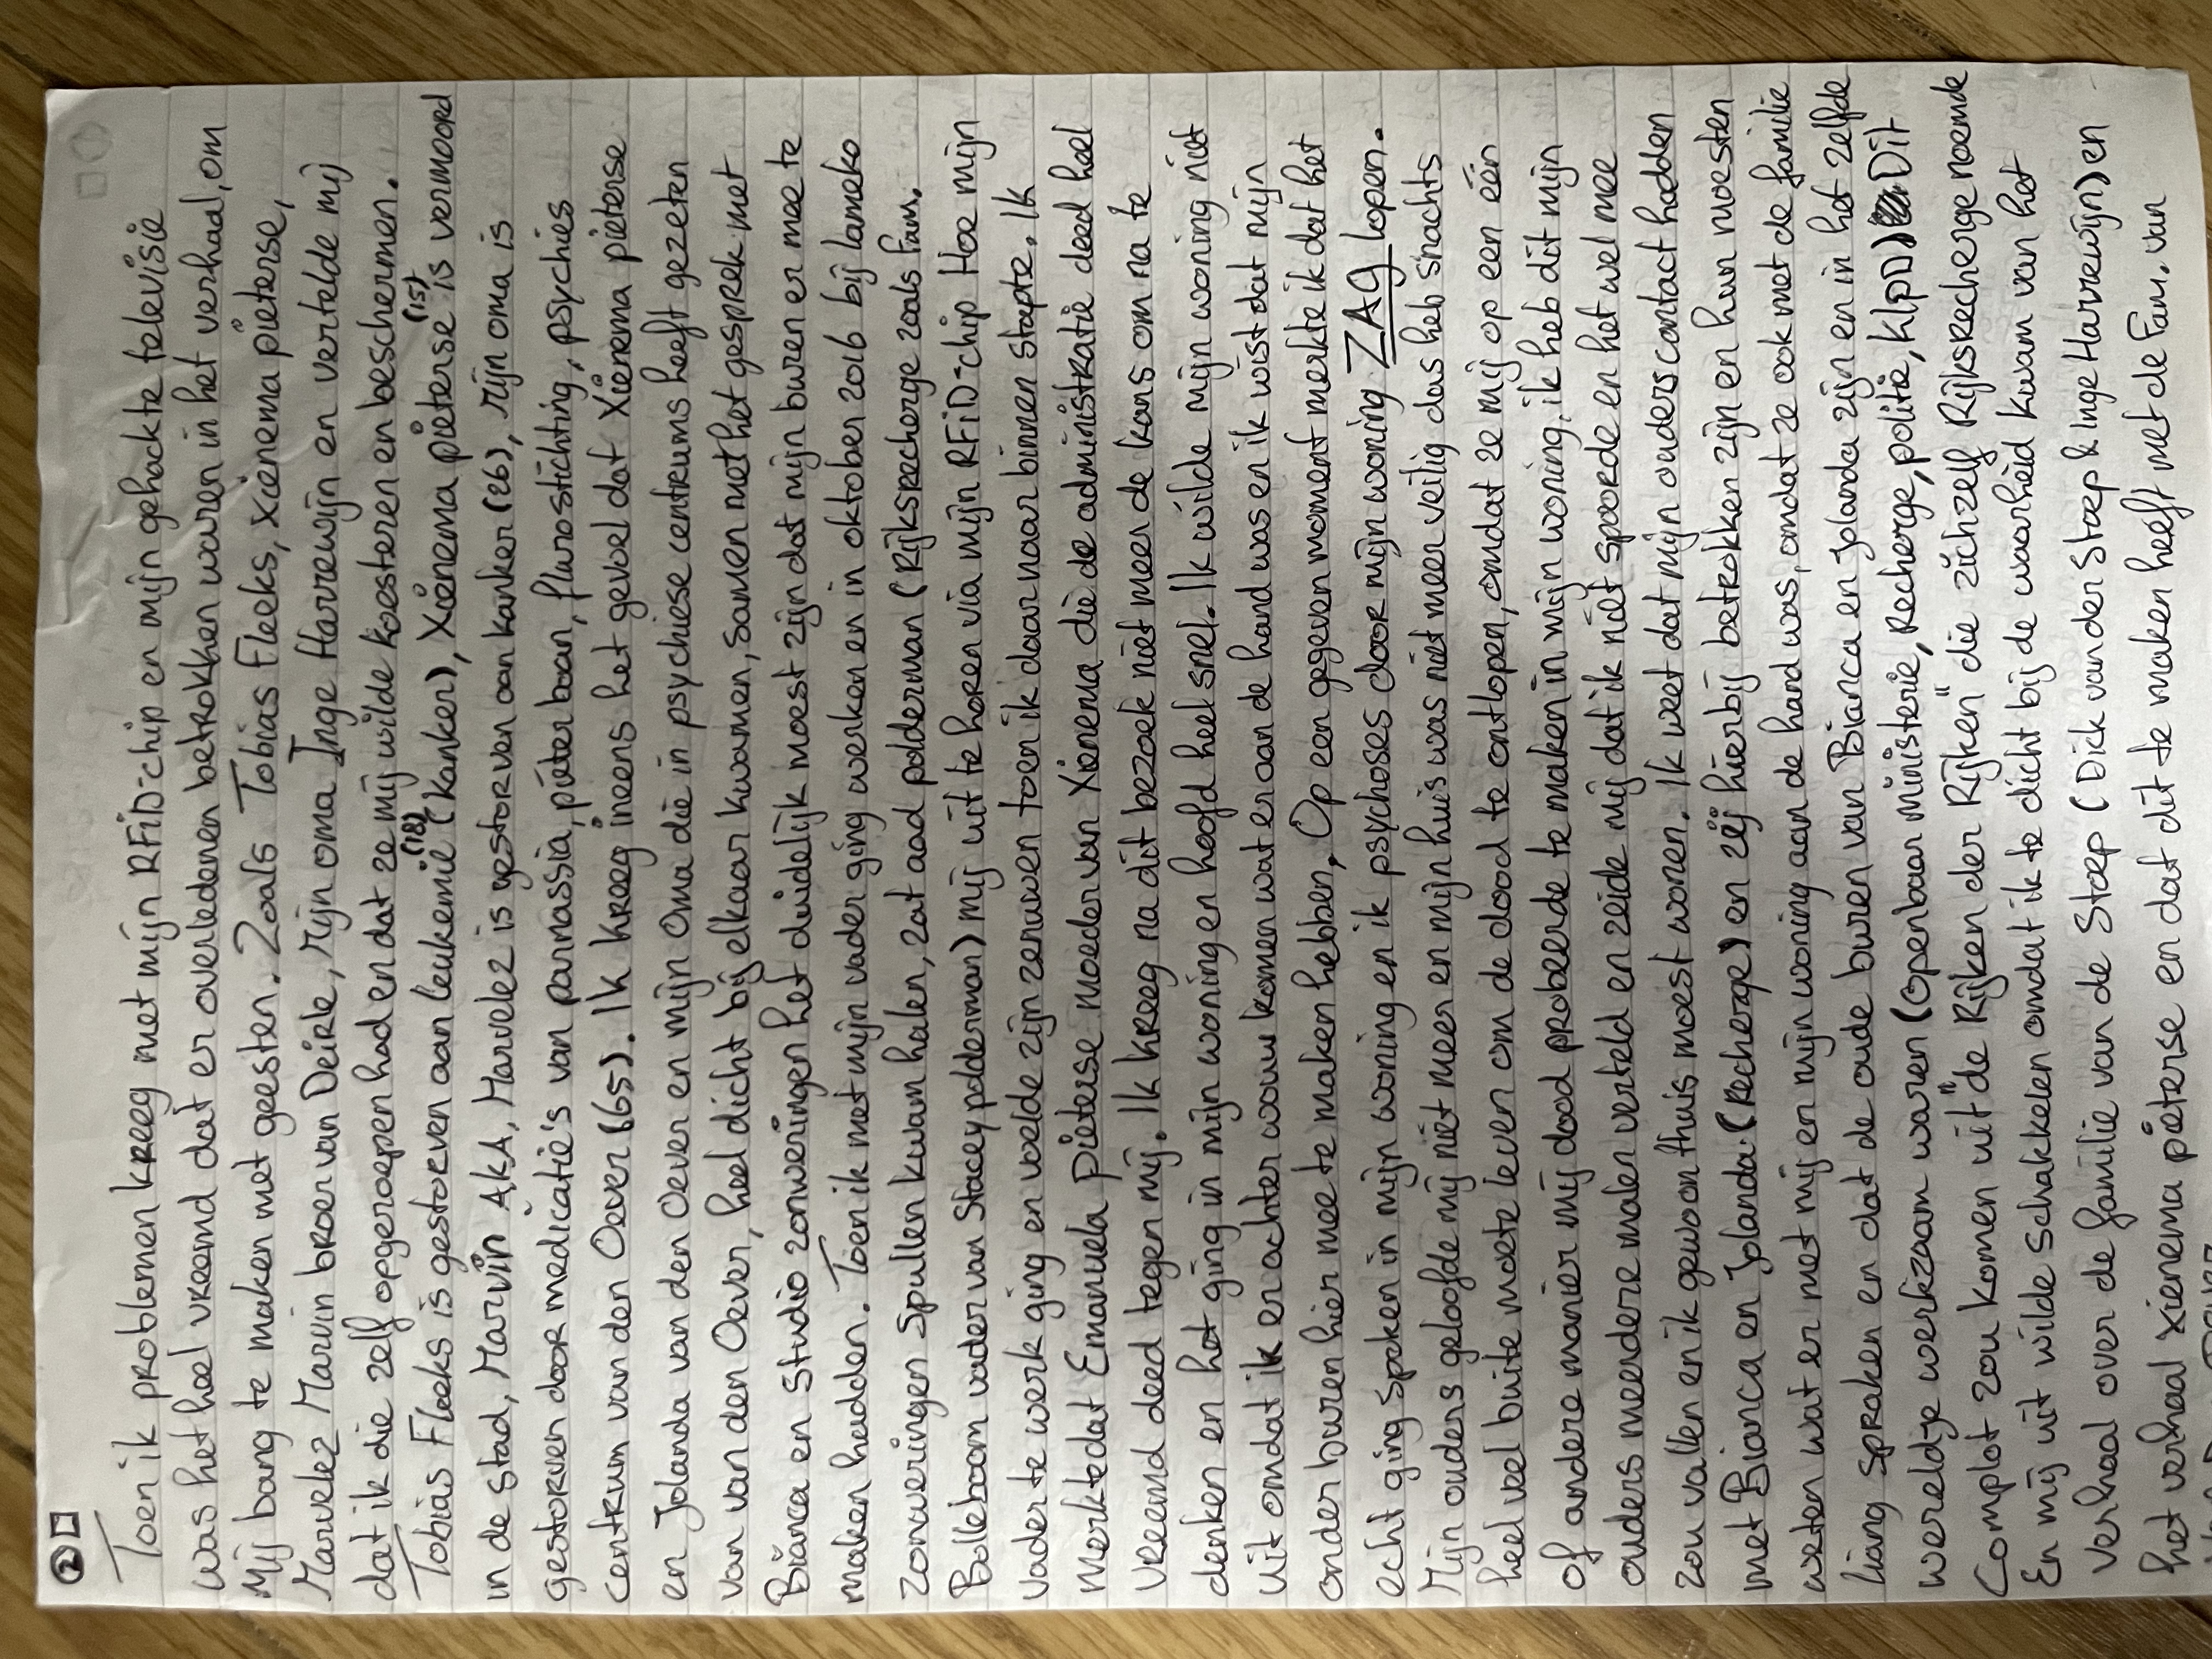 ②
Toen ik problemen kreeg met mijn RFiD-chip en mijn gehackte televisie
was het heel vreemd dat er overledenen betrokken waren in het verhaal, om
Mij bang te maken met geesten. Zoals Tobias Fleeks, xienenna pieterse,
Marvelez Marvin broer van Deirle, Mijn oma Inge Harrewijn en vertelde mij
dat ik die zelf opgeroepen had en dat ze mij wilde koesteren en beschermen.
Tobias Fleeks is gestorven aan leukemie (18) (kanker), Xienema pieterse (15) is vermoord
in de stad, Marvin A.K.A, Marvelez is gestorven aan kanker (26), Mijn oma is
gestorven door medicatie's van parnassia, pieter baan, fluvostichting, psychies
centrum van den Oever (65). Ik kreeg ineens het gevoel dat Xienenna pieterse
en Jolanda van den Oever en mijn Oma die in psychiese centrums heeft gezeten
van van den Oever, heel dicht bij elkaar kwamen, samen met het gesprek met
Bianca en Studio zonweringen het duidelijk moest zijn dat mijn buren er mee te
maken hadden. Toen ik met mijn vader ging werken en in oktober 2016 bij lameko
zonweringen Spullen kwam halen, zat aad polderman (Rijksrecherge zoals Fam.
Bolleboom vader van Stacey polderman) mij uit te horen via mijn RFiD-chip Hoe mijn
vader te werk ging en voelde zijn zenuwen toen ik daar naar binnen stapte. Ik
Merkte dat Emanuela pieterse moeder van Xienema die de administratie deed heel
vreemd deed tegen mij. Ik kreeg na dit bezoek niet meer de kans om na te
denken en het ging in mijn woning en hoofd heel snel. Ik wilde mijn woning niet
uit omdat ik er achter wou komen wat er aan de hand was en ik wist dat mijn
onderburen hier mee te maken hebben, Op een gegeven moment merkte ik dat het
echt ging spoken in mijn woning en ik psychoses door mijn woning ZAG lopen.
Mijn ouders geloofde mij niet meer en mijn huis was niet meer veilig dus heb s'nachts
heel veel buite moete leven om de dood te ontlopen, omdat ze mij op een één
of andere manier mij dood probeerde te maken in mijn woning, ik heb dit mijn
ouders meerdere malen verteld en zeide mij dat ik niet spoorde en het wel mee
zou vallen en ik gewoon thuis moest wonen. Ik weet dat mijn ouders contact hadden
met Bianca en Jolanda (Recherge) en zij hierbij betrokken zijn en hun moesten
weten wat er met mij en mijn woning aan de hand was, omdat ze ook met de familie
liang spraken en dat de oude buren van Bianca en Jolanda zijn en in het zelfde
wereldje werkzaam waren (Openbaar ministerie, Recherge, politie, KlpD) Dit
Complot zou komen uit "de Rijken der Rijken" die zichzelf Rijksrecherge noemde
En mij uit wilde schakkelen omdat ik te dicht bij de waarheid kwam van het
verhaal over de familie van de Stoep (Dick van der stoep & Inge Harrewijn) en
het verhaal xienema pieterse en dat dit te maken heeft met de Fam. van